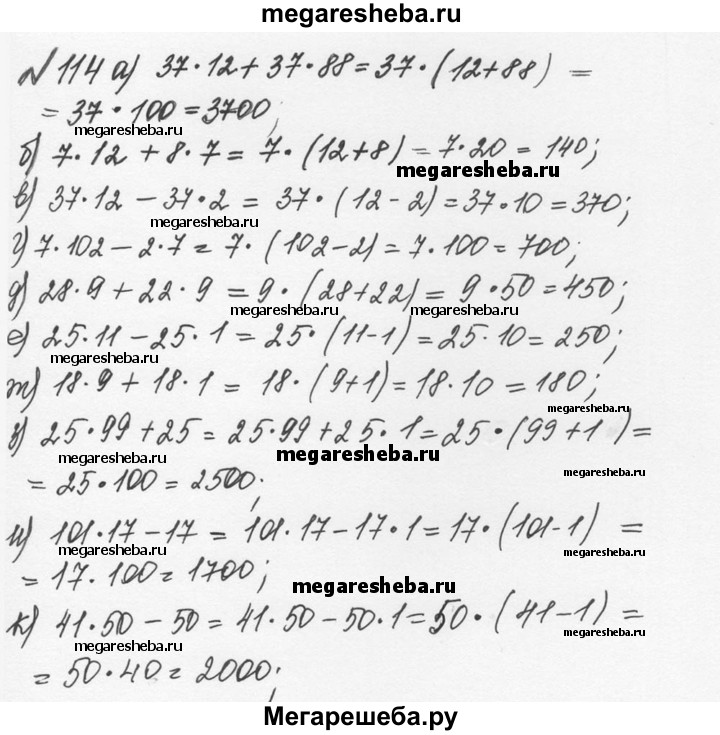 megaresheba.ru
№114 а) 37·12+37·88=37·(12+88) =
= 37·100=3700;
megaresheba.ru
б) 7·12+8·7=7·(12+8)=7·20=140;
megaresheba.ru
в) 37·12-37·2=37·(12-2)=37·10=370;
megaresheba.ru
г) 7·102-2·7=7·(102-2)=7·100=700;
д) 28·9+22·9=9·(28+22)=9·50=450;
megaresheba.ru megaresheba.ru
е) 25·11-25·1=25·(11-1)=25·10=250;
megaresheba.ru
ж) 18·9+18·1=18·(9+1)=18·10=180;
megaresheba.ru
з) 25·99+25=25·99+25·1=25·(99+1)=
megaresheba.ru megaresheba.ru
= 25·100=2500;
megaresheba.ru
и) 101·17-17=101·17-17·1=17·(101-1) =
megaresheba.ru megaresheba.ru
= 17·100=1700;
megaresheba.ru
к) 41·50-50=41·50-50·1=50·(41-1) =
megaresheba.ru megaresheba.ru
= 50·40=2000;
Мегарешеба.ру